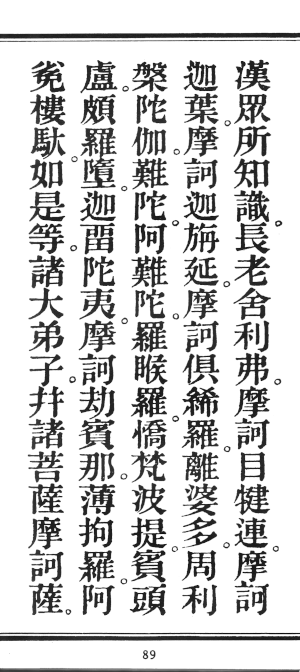 漢眾所知識。長老舍利弗。摩訶目犍連。摩訶
迦葉。摩訶迦旃延。摩訶俱絺羅。離婆多。周利
槃陀伽。難陀。阿難陀。羅睺羅。憍梵波提。賓頭
盧頗羅墮。迦畱陀夷。摩訶劫賓那。薄拘羅。阿
㝹樓馱。如是等諸大弟子。幷諸菩薩摩訶薩。
89